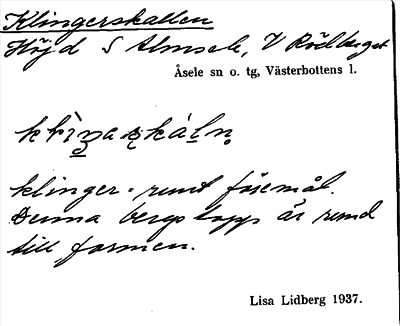 Klingerskallen
Höjd S Almsele, V Rödberget
Åsele sn o. tg, Västerbottens l.
klinger = runt föremål.
Denna bergstopp är rund
till formen.
Lisa Lidberg 1937.